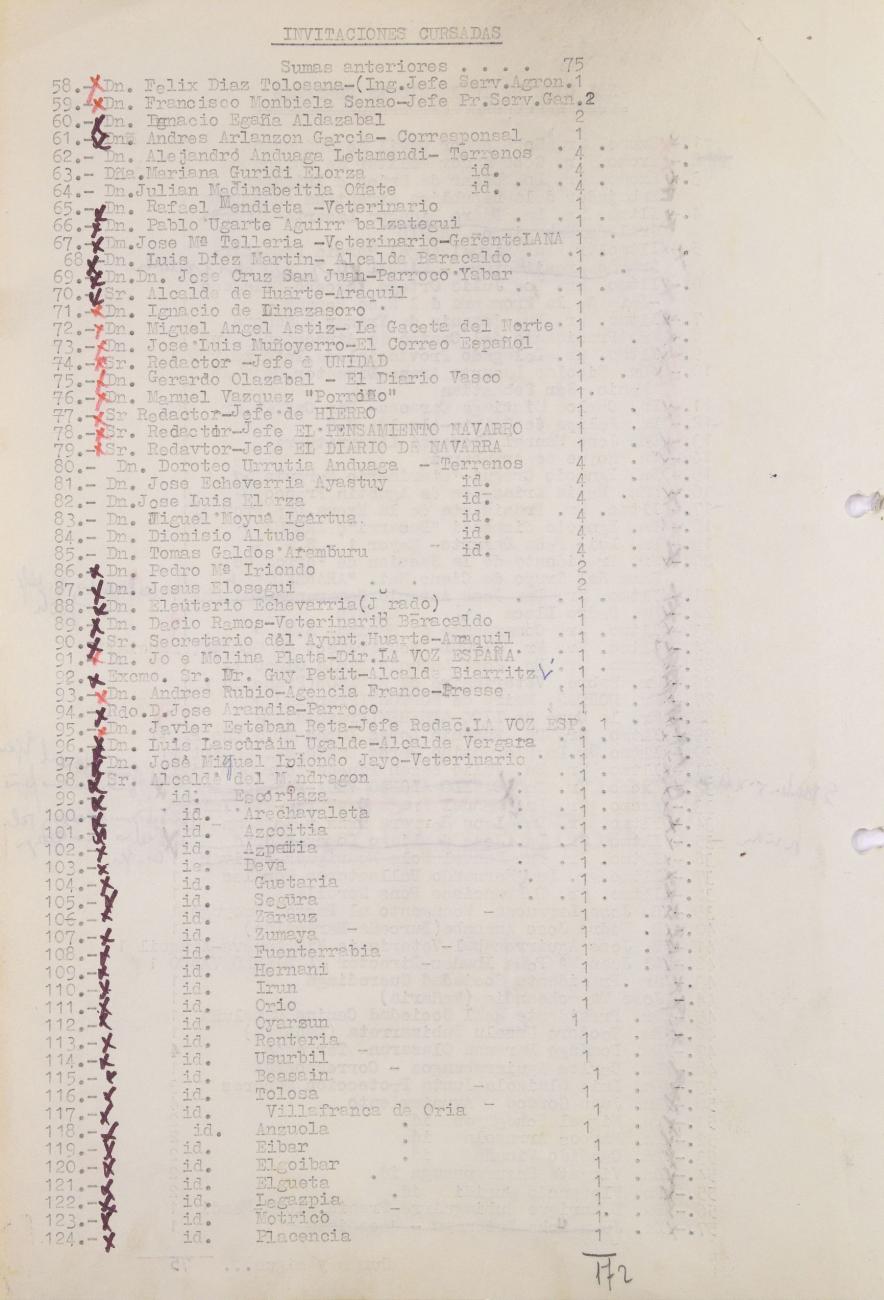 INVITACIONES CURSADAS
Sumas anteriores . . . . 75
58.- Dn. Felix Diaz Tolosana-(Ing.Jefe Serv.Agron. 1
59.- Dn. Francisco Monbiela Senao-Jefe Pr.Serv.Gan. 2
60.- Dn. Ignacio Egaña Aldazabal 2
61.- Dn. Andres Arlanzon Garcia- Corresponsal 1
62.- Dn. Alejandro Anduaga Letamendi- Terrenos 4
63.- Dña.Mariana Guridi Elorza id. 4
64.- Dn.Julian Madinabeitia Oñate id. 4
65.- Dn. Rafael Mendieta -Veterinario 1
66.- Dn. Pablo Ugarte Aguirr balzategui 1
67.- Dm.Jose Mª Telleria -Veterinario-GerenteLANA 1
68.- Dn. Luis Diez Martin- Alcalde Baracaldo 1
69.- Dn.Dn. Jose Cruz San Juan-Parroco Yabar 1
70.- Sr. Alcalde de Huarte-Araquil 1
71.- Dn. Ignacio de Linazasoro 1
72.- Dn. Miguel Angel Astiz- La Gaceta del Norte 1
73.- Dn. Jose Luis Muñoyerro-El Correo Español 1
74.- Sr. Redactor -Jefe d UNIDAD 1
75.- Dn. Gerardo Olazabal - El Diario Vasco 1
76.- Dn. Manuel Vazquez "Porriño" 1
77.- Sr Redactor-Jefe de HIERRO 1
78.- Sr. Redactor-Jefe EL PENSAMIENTO NAVARRO 1
79.- Sr. Redavtor-Jefe EL DIARIO DE NAVARRA 1
80.- Dn. Doroteo Urrutia Anduaga - Terrenos 4
81.- Dn. Jose Echeverria Ayastuy id. 4
82.- Dn.Jose Luis Elorza id. 4
83.- Dn. Miguel Moyua Igartua. id. 4
84.- Dn. Dionisio Altube id. 4
85.- Dn. Tomas Galdos Aramburu id. 4
86.- Dn. Pedro Mª Iriondo 2
87.- Dn. Jesus Elosegui 2
88.- Dn. Eleuterio Echevarria(J rado) 1
89.- Dn. Dacio Ramos-Veterinario Baracaldo 1
90.- Sr. Secretario del Ayunt.Huarte-Araquil 1
91.- Dn. Jo e Molina Plata-Dir.LA VOZ ESPAÑA 1
92.- Excmo. Sr. Mr. Guy Petit-Alcalde Biarritz 1
93.- Dn. Andres Rubio-Agencia France-Presse 1
94.- Rdo.D.Jose Arandia-Parroco 1
95.- Dn. Javier Esteban Reta-Jefe Redac.LA VOZ ESP. 1
96.- Dn. Luis Lascurain Ugalde-Alcalde Vergara 1
97.- Dn. José Miguel Iriondo Jayo-Veterinario 1
98.- Sr. Alcalde del Mondragon 1
99.- id. Escoriaza 1
100.- id. Arechavaleta 1
101.- id. Azcoitia 1
102.- id. Azpeitia 1
103.- id. Deva 1
104.- id. Guetaria 1
105.- id. Segura 1
106.- id. Zarauz 1
107.- id. Zumaya 1
108.- id. Fuenterrabia 1
109.- id. Hernani 1
110.- id. Irun 1
111.- id. Orio 1
112.- id. Oyarzun 1
113.- id. Renteria 1
114.- id. Usurbil 1
115.- id. Beasain 1
116.- id. Tolosa 1
117.- id. Villafranca de Oria 1
118.- id. Anzuola 1
119.- id. Eibar 1
120.- id. Elgoibar 1
121.- id. Elgueta 1
122.- id. Legazpia 1
123.- id. Motrico 1
124.- id. Placencia 1
172